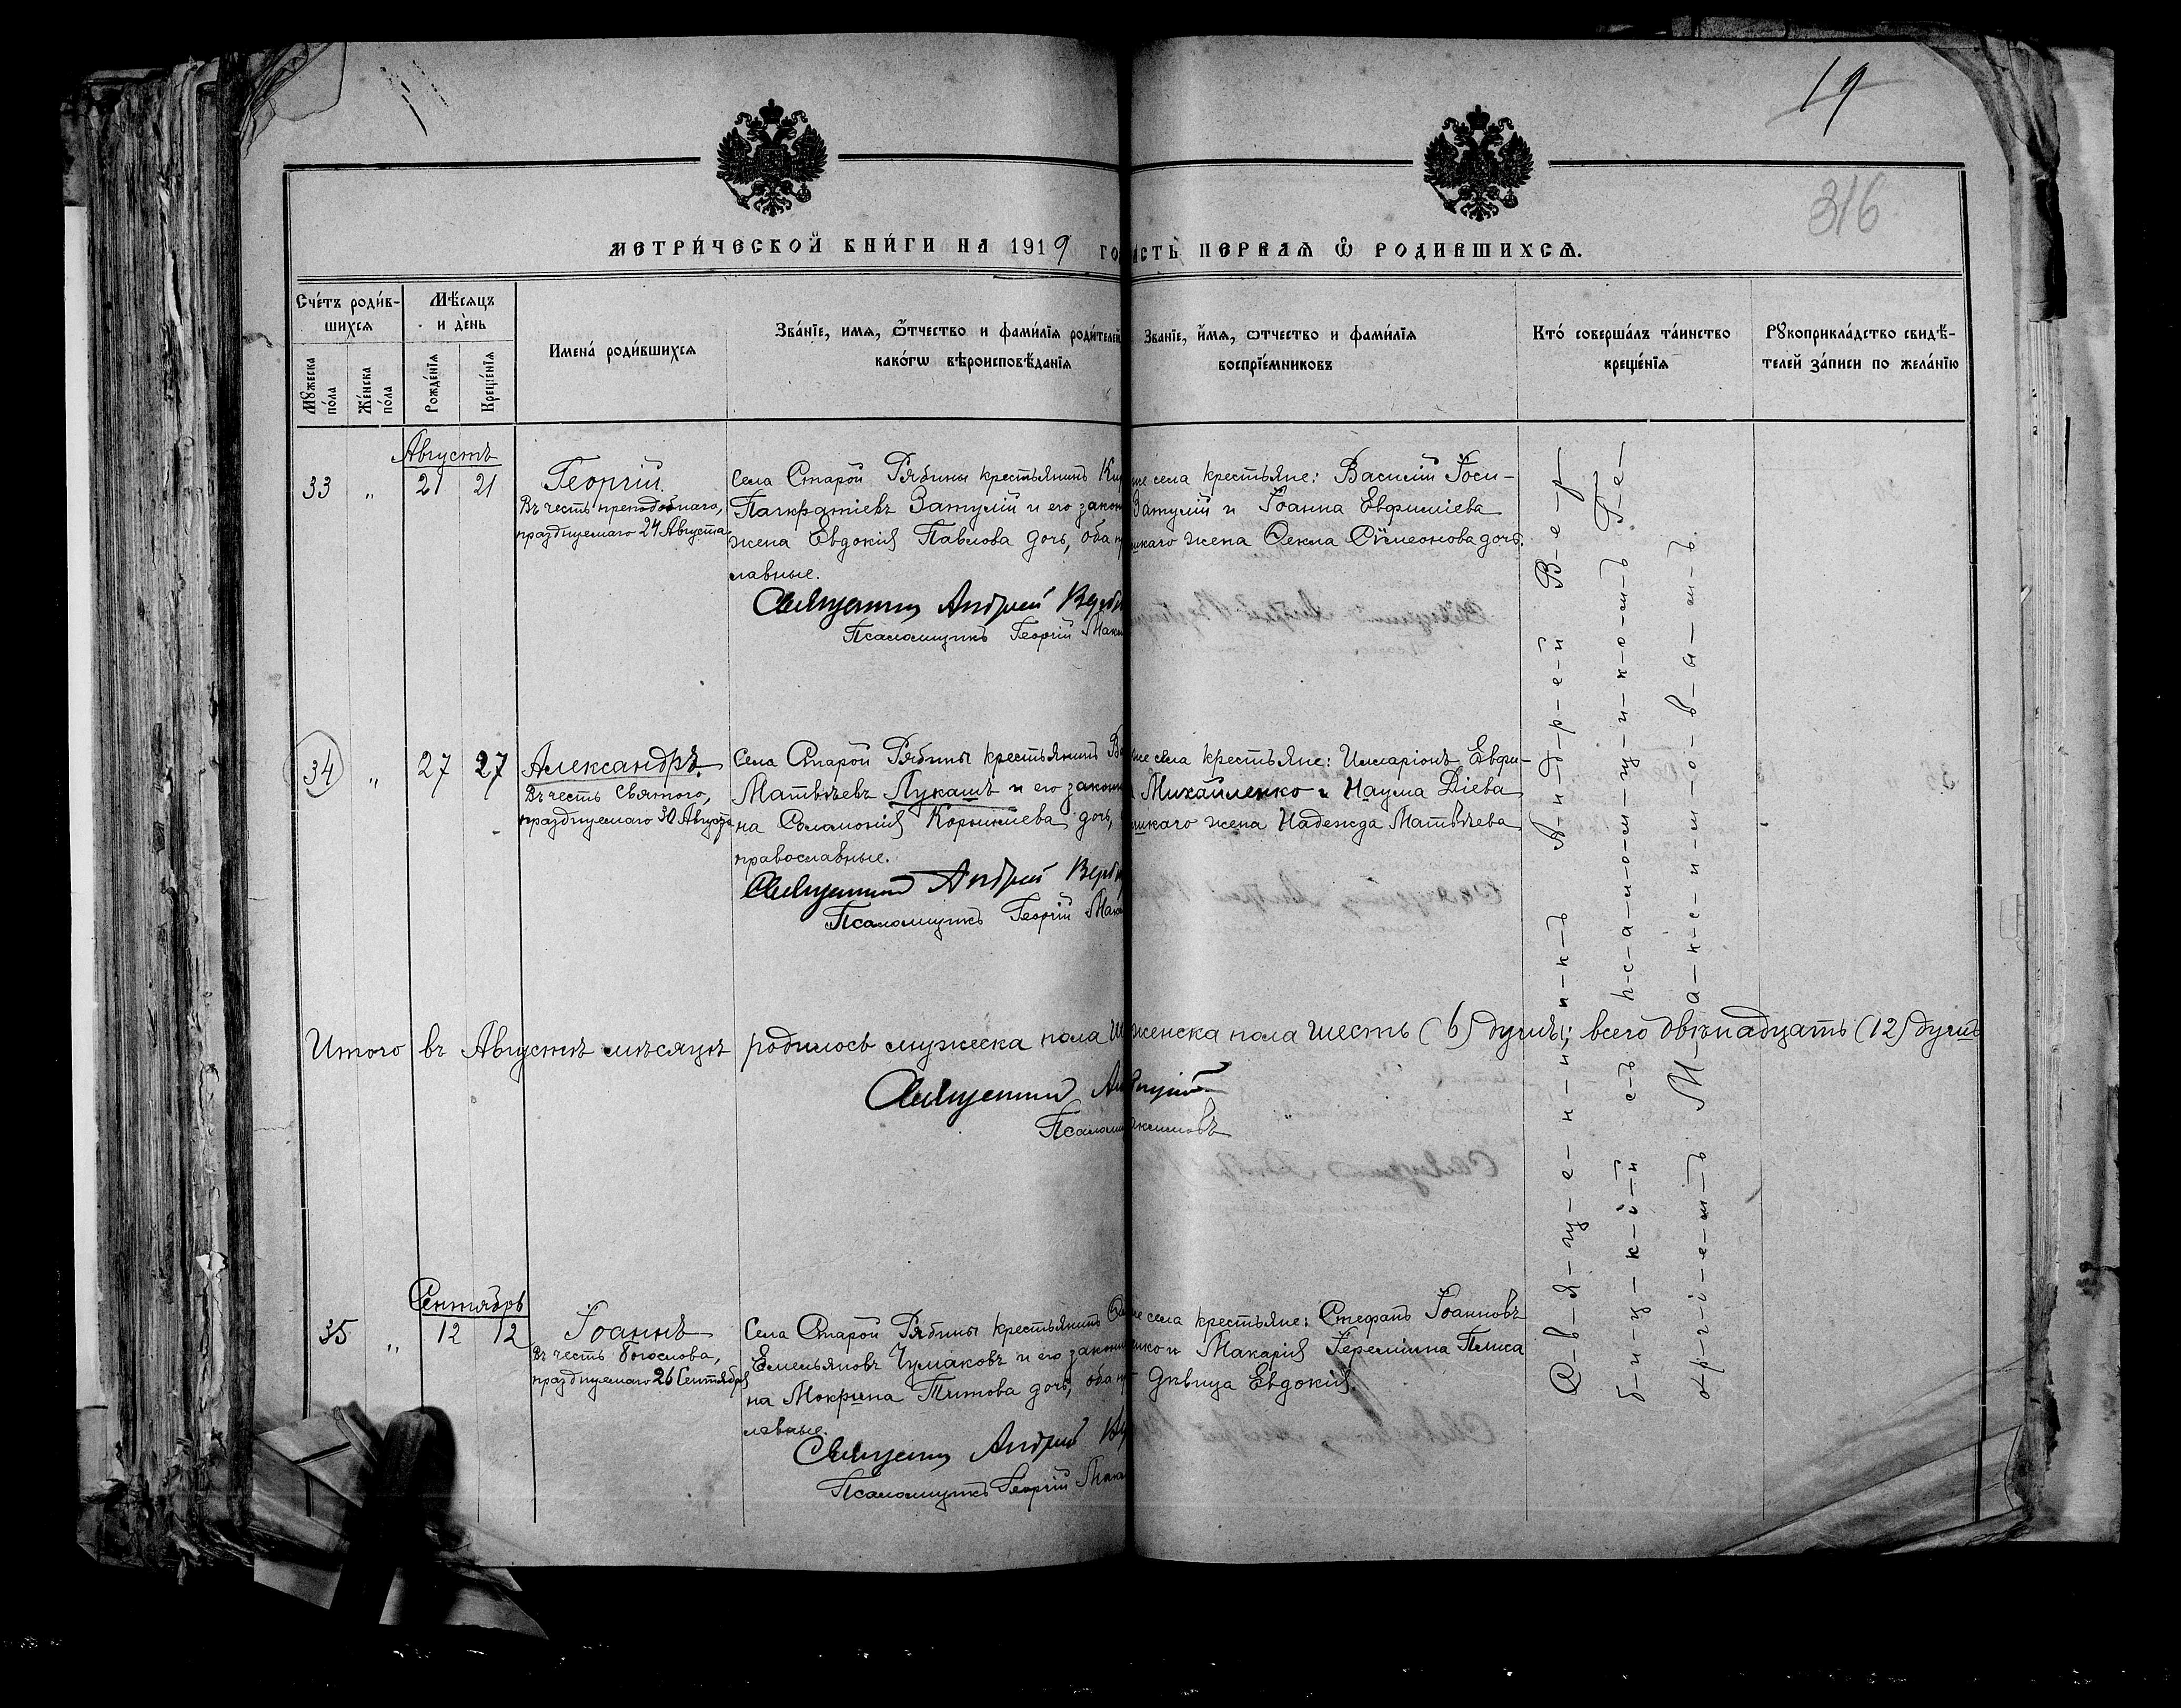 19
316
МЕТРИ́ЧЕСКОЙ КНИ́ГИ НА 1919 ГО
АСТЬ ПЕРВАЯ Ѡ РОДИВШИХСѦ.
Счétъ роди́в-
шихсѧ
Мꙋ́жеска по́ла
Же́нска по́ла
Мѣ́сяцъ
и де́нь
Рожде́нїѧ
Креще́нїѧ
Имена́ роди́вшихсѧ
Зва́нїе, имѧ, ѻ҆́тчество и фами́лїѧ роди́телей
како́гѡ вѣроисповѣ́данїѧ
Зва́нїе, и́мѧ, ѻтчество и фами́лїѧ
воспрїе́мниковъ
Кто́ соверша́лъ та́инство
креще́нїѧ
Рꙋкоприкла́дство свидѣ́-
телей за́писи по жела́нїю
Августъ
33 „ 21 21
Георгій
Въ честь преподобнаго,
празднуемаго 24 Августа
Села Старой Рябины крестьянинъ Кир
Панкратіевъ Затулій и его закон
жена Евдокія Павлова дочь, оба п
лавные.
Священникъ Андрей Верби
Псаломщикъ Георгій Макси
же села крестьяне: Василій Іоси-
Затулій и Іоанна Евфиміева
цкаго жена Ѳекла Сѵмеонова дочь.
34 „ 27 27
Александръ.
Въ честь Святого,
празднуемаго 30 Августа
Села Старой Рябины крестьянинъ
Матвѣевъ Лукашъ и его законн
на Соломонія Корниліева дочь,
православные.
Священникъ Андрей Верби
Псаломщикъ Георгій Макс
же села крестьяне: Илларіонъ Евфи-
Михайленко и Наума Діева
цкаго жена Надежда Матвѣева
Итого въ Августѣ мѣсяцѣ родилось мужеска пола ш
женска пола шесть (6) душъ; всего двѣнадцать (12) душъ
Священникъ Ан
ицкій
Псалом
аксимовъ
Сентябрь
35 „ 12 12
Іоаннъ
Въ честь Богослова,
празднуемаго 26 Сентября
Села Старой Рябины крестьянинъ
Емельяновъ Чумаковъ и его законн
на Мокрина Титова дочь, оба п
лавные.
Священникъ Андрей
Псаломщикъ Георгій Макс
же села крестьяне: Стефанъ Іоанновъ
нко и Макарія Іереміина Плиса
дѣвица Евдокія.
С-в-я-щ-е-н-н-и-к-ъ А-н-д-р-е-й В-е-р-
б-и-ц-к-і-й с-ъ п-с-а-л-о-м-щ-и-к-о-м-ъ Г-е-
о-р-г-і-е-м-ъ М-а-к-с-и-м-о-в-ы-м-ъ.